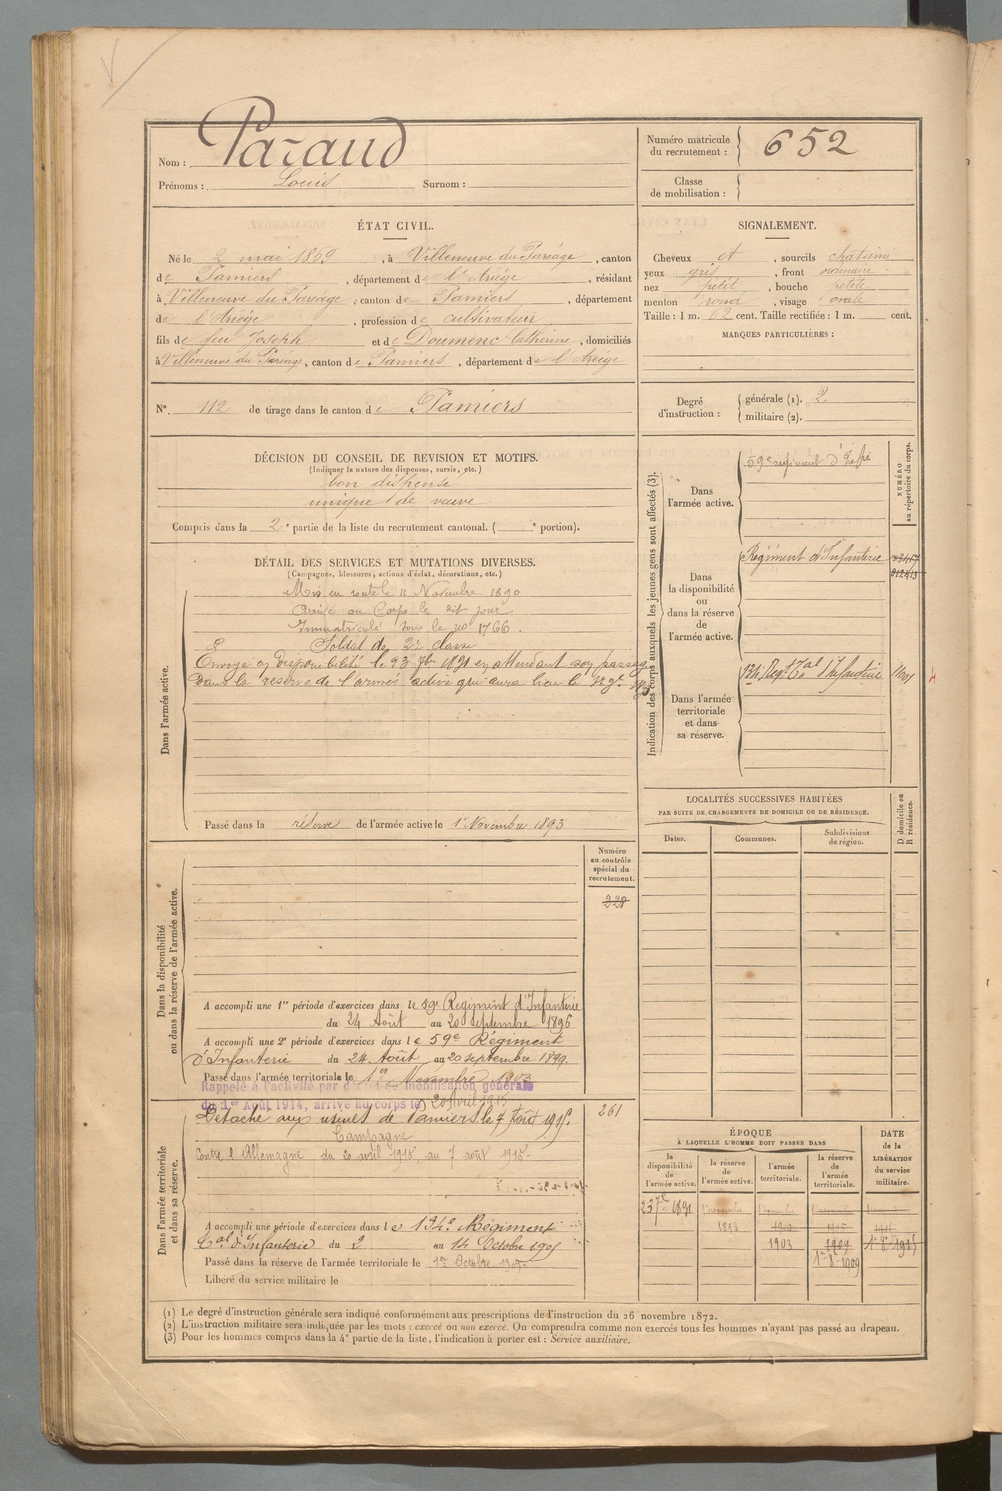 Nom : Pazaud
Prénoms : Louis Surnom :
Numéro matricule du recrutement : 652
Classe de mobilisation :
ÉTAT CIVIL.
Né le 2 mai 1869, à Villeneuve du Paréage, canton
de Pamiers, département de l'Ariège, résidant
à Villeneuve du Paréage, canton de Pamiers, département
de l'Ariège, profession de cultivateur
fils de feu Joseph et de Doumenc Catherine, domiciliés
à Villeneuve du Paréage, canton de Pamiers, département de l'Ariège
SIGNALEMENT.
Cheveux et, sourcils châtains
yeux gris, front ordinaire
nez petit, bouche petite
menton rond, visage ovale
Taille : 1 m. 62 cent. Taille rectifiée : 1 m. cent.
MARQUES PARTICULIÈRES :
N° 112 de tirage dans le canton de Pamiers
Degré d'instruction :
générale (1). 2
militaire (2).
DÉCISION DU CONSEIL DE REVISION ET MOTIFS.
(Indiquer la nature des dispenses, sursis, etc.)
bon dispensé
unique f de veuve
Compris dans la 2e partie de la liste du recrutement cantonal. ( e portion).
DÉTAIL DES SERVICES ET MUTATIONS DIVERSES.
(Campagnes, blessures, actions d'éclat, décorations, etc.)
Dans l'armée active.
Mis en route le 11 Novembre 1890
Arrivé au Corps le dit jour
Immatriculé sous le no 1766.
Soldat de 2e classe
Envoyé en Disponibilité le 23 7bre 1891 en attendant son passage
Dans la réserve de l'armée active qui aura lieu le 1er 9bre 1893
Passé dans la réserve de l'armée active le 1er Novembre 1893
Indication des corps auxquels les jeunes gens sont affectés (3).
NUMÉRO au répertoire du corps.
Dans l'armée active.
59e régiment d'Infrie
Dans la disponibilité ou dans la réserve de l'armée active.
Régiment d'Infanterie
Dans l'armée territoriale et dans sa réserve.
134 Regt Tal d'Infanterie
LOCALITÉS SUCCESSIVES HABITÉES
PAR SUITE DE CHANGEMENTS DE DOMICILE OU DE RÉSIDENCE.
Dates.
Communes.
Subdivisions de région.
D domicile ou R résidence.
Dans la disponibilité ou dans la réserve de l'armée active.
Numéro au contrôle spécial du recrutement.
228
A accompli une 1re période d'exercices dans le 59e Régiment d'Infanterie
du 24 Août au 20 septembre 1896
A accompli une 2e période d'exercices dans le 59e Régiment
d'Infanterie du 24 Août au 20 septembre 1899
Passé dans l'armée territoriale le 1er Novembre 1903
Rappelé à l'activité par décret de mobilisation générale
du 1er Août 1914, arrivé au corps le 20 Avril 1915
Dans l'armée territoriale et dans sa réserve.
261
Détaché aux usines de Pamiers le 7 Août 1915.
Campagne
Contre l'Allemagne du 20 avril 1915, au 7 août 1915
A accompli une période d'exercices dans le 134e Régiment
Tal d'Infanterie du 2 au 14 Octobre 1905
Passé dans la réserve de l'armée territoriale le 1er Octobre 1909
Libéré du service militaire le
ÉPOQUE
À LAQUELLE L'HOMME DOIT PASSER DANS
la disponibilité de l'armée active.
la réserve de l'armée active.
l'armée territoriale.
la réserve de l'armée territoriale.
DATE de la LIBÉRATION du service militaire.
23 7bre 1891
1893
1903
1909
1er 8bre 1909
1er 8bre 1915
(1) Le degré d'instruction générale sera indiqué conformément aux prescriptions de l'instruction du 26 novembre 1872.
(2) L'instruction militaire sera indiquée par les mots : exercé ou non exercé. On comprendra comme non exercés tous les hommes n'ayant pas passé au drapeau.
(3) Pour les hommes compris dans la 4e partie de la liste, l'indication à porter est : Service auxiliaire.